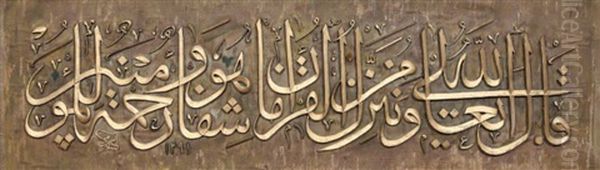 قال الله تعالى وننزل من القرآن ما هو شفاء ورحمة للمؤمنين
١٢٩٩